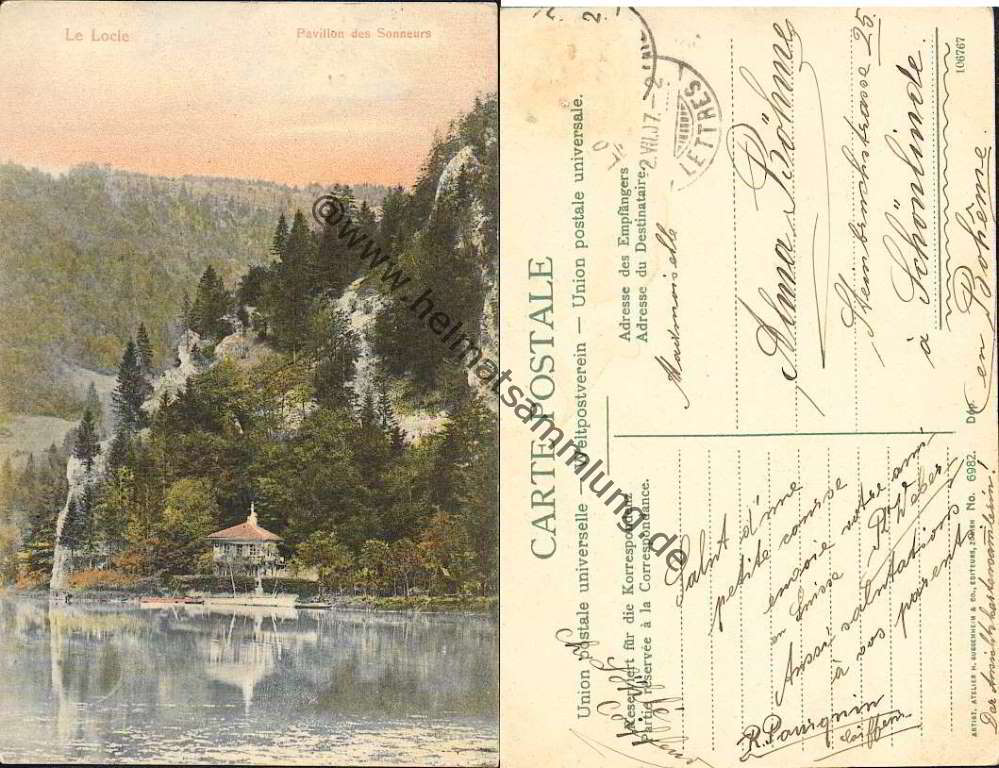 Le Locle
Pavillon des Sonneurs
@www.heimatsammlung.de
CARTE POSTALE
Union postale universelle — Weltpostverein — Union postale universale.
Reserviert für die Korrespondenz
Partie réservée à la Correspondance.
Adresse des Empfängers
Adresse du Destinataire.
LETTRES
2.VII.07.
Mademoiselle
Anna Böhme
Steinbruchstrasse 25.
à Schönlinde.
en Bohême
Salut d'une
petite course
envoie votre ami
en Suisse
Weber
Aussi salutations
à vos parents
R. Pourquin
ARTIST. ATELIER H. GUGGENHEIM & CO., EDITEURS, ZÜRICH No. 6982. Dép.
106767